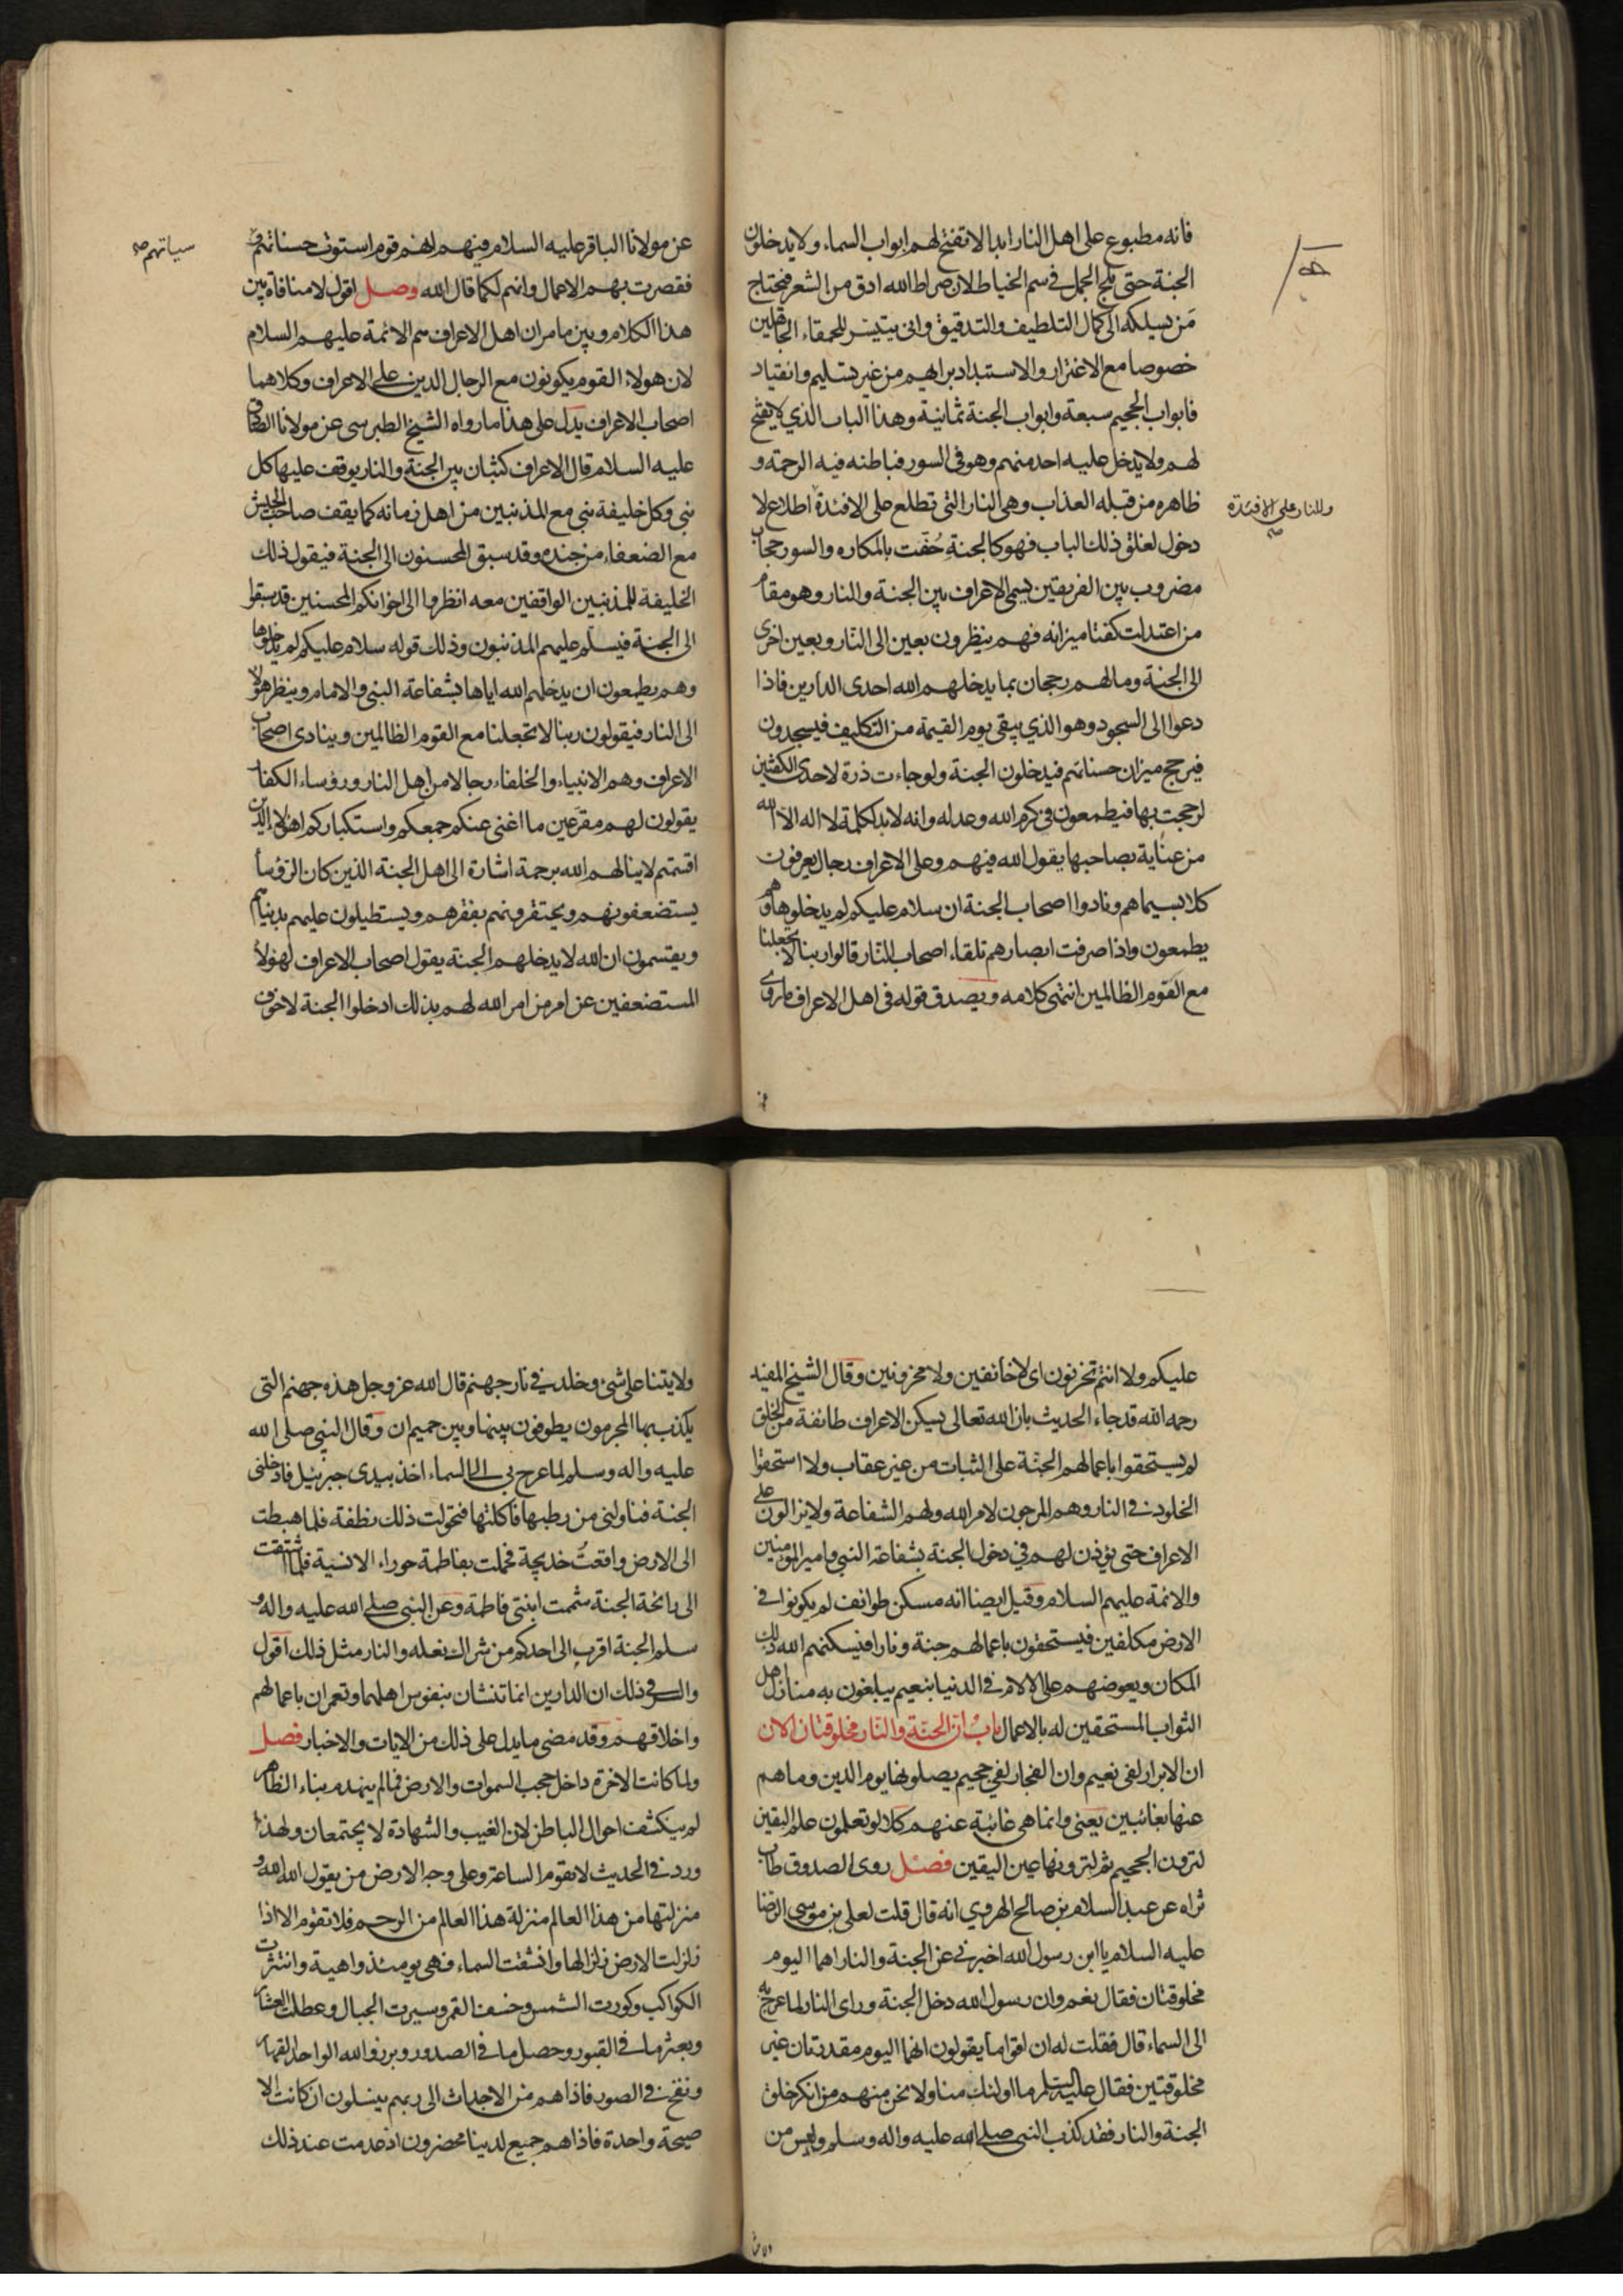 فانه مطبوع على اهل النار ابدا لا تفتح لهم ابواب السماء ولا يدخلون
الجنة حتى يلج الجمل في سم الخياط لان صراط الله ادق من الشعر فيحتاج
مَن يسلكه الى كمال التلطيف والتدقيق وانى يتيسّر للحمقاء الجاهلين
خصوصا مع الاغترار والاستبداد برايهم من غير تسليم وانقياد
فابواب الجحيم سبعة وابواب الجنة ثمانية وهذا الباب الذي لا يفتح
لهم ولا يدخل عليه احد منهم وهو في السور فباطنه فيه الرحمة و
ظاهره من قبله العذاب وهى النار التى تطلع على الافئدة اطلاع لا
وللنار على الافئدة صح
دخول لغلق ذلك الباب فهو كالجنة حُفّت بالمكاره والسور حجاب
مضروب بين الفريقين يسمى الاعراف بين الجنة والنار وهو مقام
من اعتدلت كفتا ميزانه فهم ينظرون بعين الى النار وبعين اخرى
الى الجنة ومالهم رجحان بما يدخلهم الله احدى الدارين فاذا
دعوا الى السجود وهو الذي يبقى يوم القيمة من التكليف فيسجدون
فيرجح ميزان حسناتهم فيدخلون الجنة ولو جاءت ذرة لاحدى الكفتين
لرجحت بها فيطمعون في كرم الله وعدله وانه لابد لكلمة لا اله الا الله
من عناية بصاحبها يقول الله فيهم وعلى الاعراف رجال يعرفون
كلا بسيماهم ونادوا اصحاب الجنة ان سلام عليكم لم يدخلوها وهم
يطمعون واذا صرفت ابصارهم تلقاء اصحاب النار قالوا ربنا لا تجعلنا
مع القوم الظالمين انتهى كلامه ويصدق قوله في اهل الاعراف ما روى
عن مولانا الباقر عليه السلام فيهم انهم قوم استوت حسناتهم و
سيئاتهم صح
فقصرت بهم الاعمال وانهم لكما قال الله وصل اقول لا منافاة بين
هذا الكلام وبين ما مر ان اهل الاعراف هم الائمة عليهم السلام
لان هولاء القوم يكونون مع الرجال الذين على الاعراف وكلاهما
اصحاب الاعراف يدل على هذا ما رواه الشيخ الطبرسى عن مولانا الصادق
عليه السلام قال الاعراف كثبان بين الجنة والنار يوقف عليها كل
نبى وكل خليفة نبى مع المذنبين من اهل زمانه كما يقف صاحب الجيش
مع الضعفاء من جنده وقد سبق المحسنون الى الجنة فيقول ذلك
الخليفة للمذنبين الواقفين معه انظروا الى اخوانكم المحسنين قد سبقوا
الى الجنة فيسلّم عليهم المذنبون وذلك قوله سلام عليكم لم يدخلوها
وهم يطمعون ان يدخلهم الله اياها بشفاعة النبى والامام وينظر هولاء
الى النار فيقولون ربنا لا تجعلنا مع القوم الظالمين وينادى اصحاب
الاعراف وهم الانبياء والخلفاء رجالا من اهل النار ورؤساء الكفار
يقولون لهم مقرّعين ما اغنى عنكم جمعكم واستكباركم اهولاء الذين
اقسمتم لا ينالهم الله برحمة اشارة الى اهل الجنة الذين كان الرؤساء
يستضعفونهم ويحتقرونهم بفقرهم ويستطيلون عليهم بدنياهم
ويقسمون ان الله لا يدخلهم الجنة يقول اصحاب الاعراف لهولاء
المستضعفين عن امر من امر الله لهم بذلك ادخلوا الجنة لا خوف
عليكم ولا انتم تحزنون اى لا خائفين ولا محزونين وقال الشيخ المفيد
رحمه الله قد جاء الحديث بان الله تعالى يسكن الاعراف طائفة من الخلق
لم يستحقوا باعمالهم الجنّة على الثبات من غير عقاب ولا استحقوا
الخلود في النار وهم المرجون لامر الله ولهم الشفاعة ولا يزالون على
الاعراف حتى يؤذن لهم في دخول الجنة بشفاعة النبي وامير المومنين
والائمة عليهم السلام وقيل ايضا انه مسكن طوائف لم يكونوا في
الارض مكلفين فيستحقون باعمالهم جنة ونارا فيسكنهم الله ذلك
المكان ويعوضهم على الالام في الدنيا بنعيم يبلغون به منازل اهل
الثواب المستحقين له بالاعمال بابُ ان الجنّة والنّار مخلوقتان الان
ان الابرار لفى نعيم وان الفجار لفي جحيم يصلونها يوم الدين وما هم
عنها بغائبين يعنى وانما هى غائبة عنهم كلا لو تعلمون علم اليقين
لترون الجحيم ثم لترونها عين اليقين فصل روى الصدوق طاب
ثراه عن عبد السلام بن صالح الهروي انه قال قلت لعلى بن موسى الرضا
عليه السلام يا ابن رسول الله اخبرنى عن الجنة والنار اهما اليوم
مخلوقتان فقال نعم وان رسول الله دخل الجنة وراى النار لما عرج به
الى السماء قال فقلت له ان اقواما يقولون انهما اليوم مقدرتان غير
مخلوقتين فقال عليه السّلم ما اولئك منا ولا نحن منهم من انكر خلق
الجنة والنار فقد كذب النبي صلى الله عليه واله وسلم وليس من
ولايتنا على شئ وخلد في نار جهنم قال الله عز وجل هذه جهنم التى
يكذب بها المجرمون يطوفون بينها وبين حميم ان وقال النبي صلى الله
عليه واله وسلم لما عرج بى الى السماء اخذ بيدى جبرئيل فادخلنى
الجنة فناولنى من رطبها فاكلتها فتحولت ذلك نطفة فلما هبطت
الى الارض واقعتُ خديجة فحملت بفاطمة حوراء الانسية فلما اشتقت
الى رائحة الجنة شممت ابنتى فاطمة وعن النبى صلى الله عليه واله و
سلم الجنة اقرب الى احدكم من شراك نعله والنار مثل ذلك اقول
والسر في ذلك ان الدارين انما تنشان بنفوس اهلهما وتعمران باعمالهم
واخلاقهم وقد مضى ما يدل على ذلك من الايات والاخبار فصل
ولما كانت الاخرة داخل حجب السموات والارض فما لم ينهدم بناء الظاهر
لم ينكشف احوال الباطن لان الغيب والشهادة لا يجتمعان ولهذا
ورد في الحديث لا تقوم الساعة وعلى وجه الارض من يقول الله الله و
منزلتها من هذا العالم منزلة هذا العالم من الرحم فلا تقوم الا اذا
زلزلت الارض زلزالها وانشقت السماء فهى يومئذ واهية وانتثرت
الكواكب وكورت الشمس وخسف القمر وسيرت الجبال وعطلت العشار
وبعثر ما في القبور وحصل ما في الصدور وبرزوا لله الواحد القهار
ونفخ في الصور فاذا هم من الاجداث الى ربهم ينسلون ان كانت الا
صيحة واحدة فاذا هم جميع لدينا محضرون اذ عدمت عند ذلك